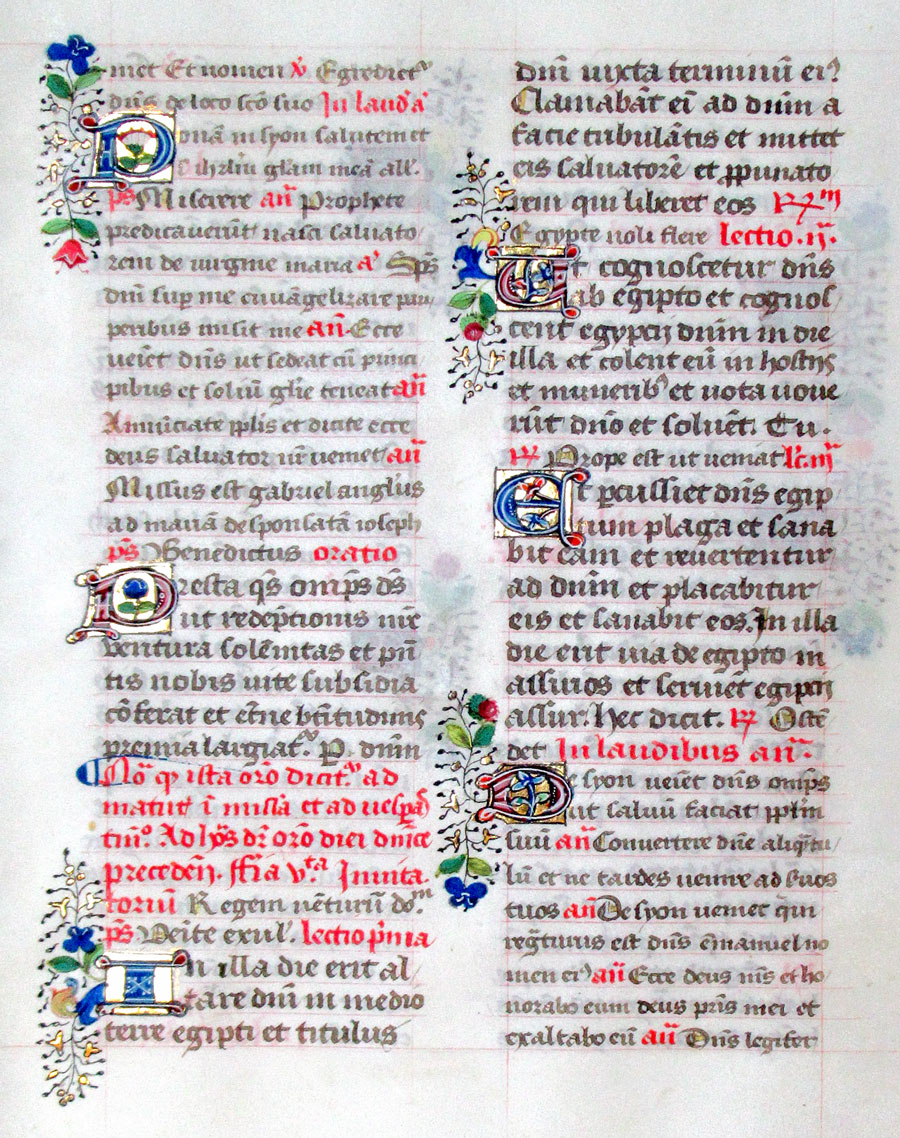 met Et nomen v̾ Egrediet᷑
dn̄s de loco sc̄o suo In laud̾ an̄
Ponā in syon salutem et
ī ihrlm̄ glām meā all̾.
ps̄ Miserere an̄ Prophete
predicaverūt nasci salvato
rem de virgine maria a᷑ Sps̄
dn̄i sup̄ me euvāgelizare pau
peribus misit me an̄. Ecce
veiēt dn̄s ut sedeat cū princi
pibus et soliū glīe teneat an̄
Annūciate ppl̄is et dicite ecce
deus salvator nr̄ veniet an̄
Missus est gabriel angl̄us
ad mariā desponsatā ioseph
ps̄ Benedictus oratio
Presta qs̄ omp̄s ds̄
ut redēptionis nr̄e
ventura solēnitas et pn̄
tis nobis vite subsidia
cōferat et et̄ne btītudinis
premia largiat᷑. P. dnm̄
Noᷓ qꝫ ista orō dicit᷑ ad
matut̄ ī missa et ad vesp̄as
tm̄. Ad hōs dr̄ orō diei dn̄ice
precedeñ. ffīa vͭᵃ Invita
toriū Regem vēturū do᷑ᵐ
ps̄ Veīte exul̾. lectio p̄ma
In illa die erit al
tare dn̄i in medio
terre egipti et titulus
dn̄i iuxta terminū eiꝰ
Clamabūt eī ad dnm̄ a
facie tribulātis et mittet
eis salvatorē et p̄pugnato
rem qui liberet eos ꝶm̄
Egypte noli flere lectio .ij.
Et cognoscetur dn̄s
ab egipto et cognos
cent egyptij dnm̄ in die
illa et colent eū in hostijs
et munerib᷑ et vota vove
rūt dn̄o et solvēt. Tu.
ꝶ Prope est ut veniat lc̄. iij
Et p̄cussiet dn̄s egip
tum plaga et sana
bit eam et revertentur
ad dnm̄ et placabitur
eis et sanabit eos. In illa
die erit via de egipto in
assirios et serviēt egiptij
assur. hec dicit. ꝶ Ostē
det In laudibus an̄.
De syon veiēt dn̄s omp̄s
ut salvū faciat ppl̄m
suū an̄ Convertere dn̄e aliq̄tu
lū et ne tardes venire ad servos
tuos an̄ De syon veniet qui
reḡturus est dn̄s ēmanuel no
men eiꝰ an̄ Ecce deus mīs et ho
norabo eum deus pr̄is mei et
exaltabo eū an̄ Dn̄s legifer